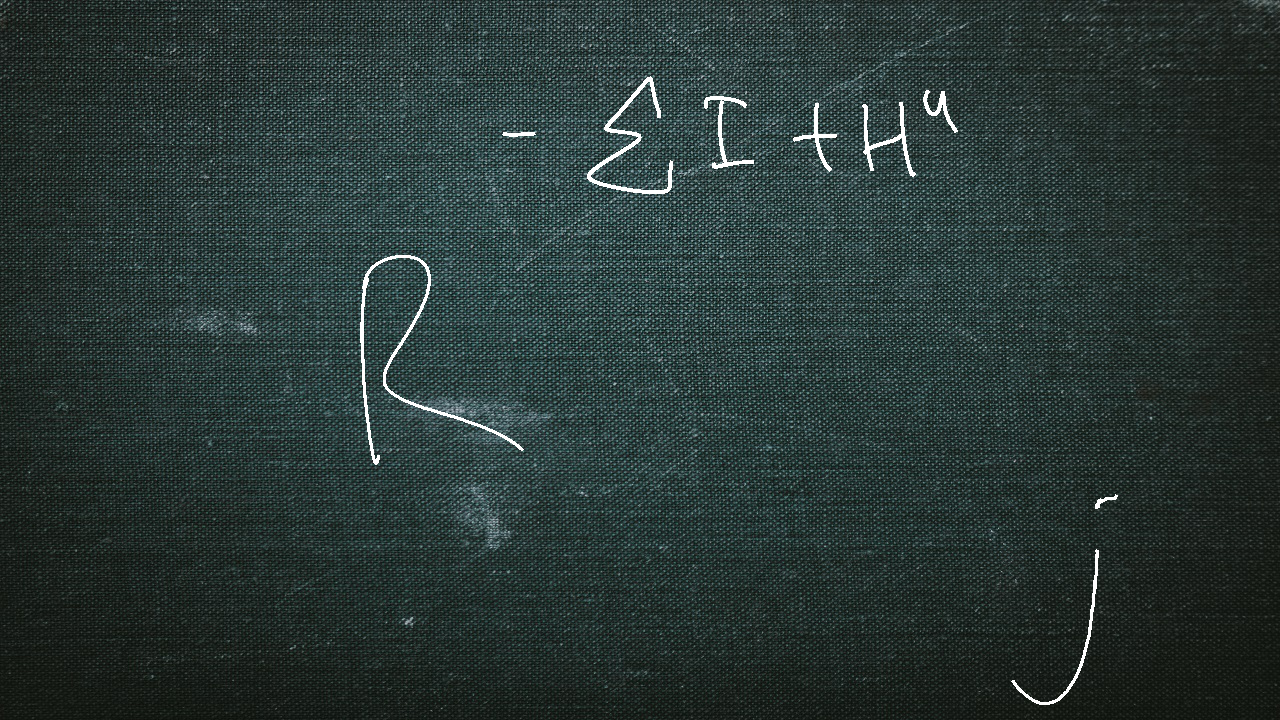 - ΣI + H⁴
R
j